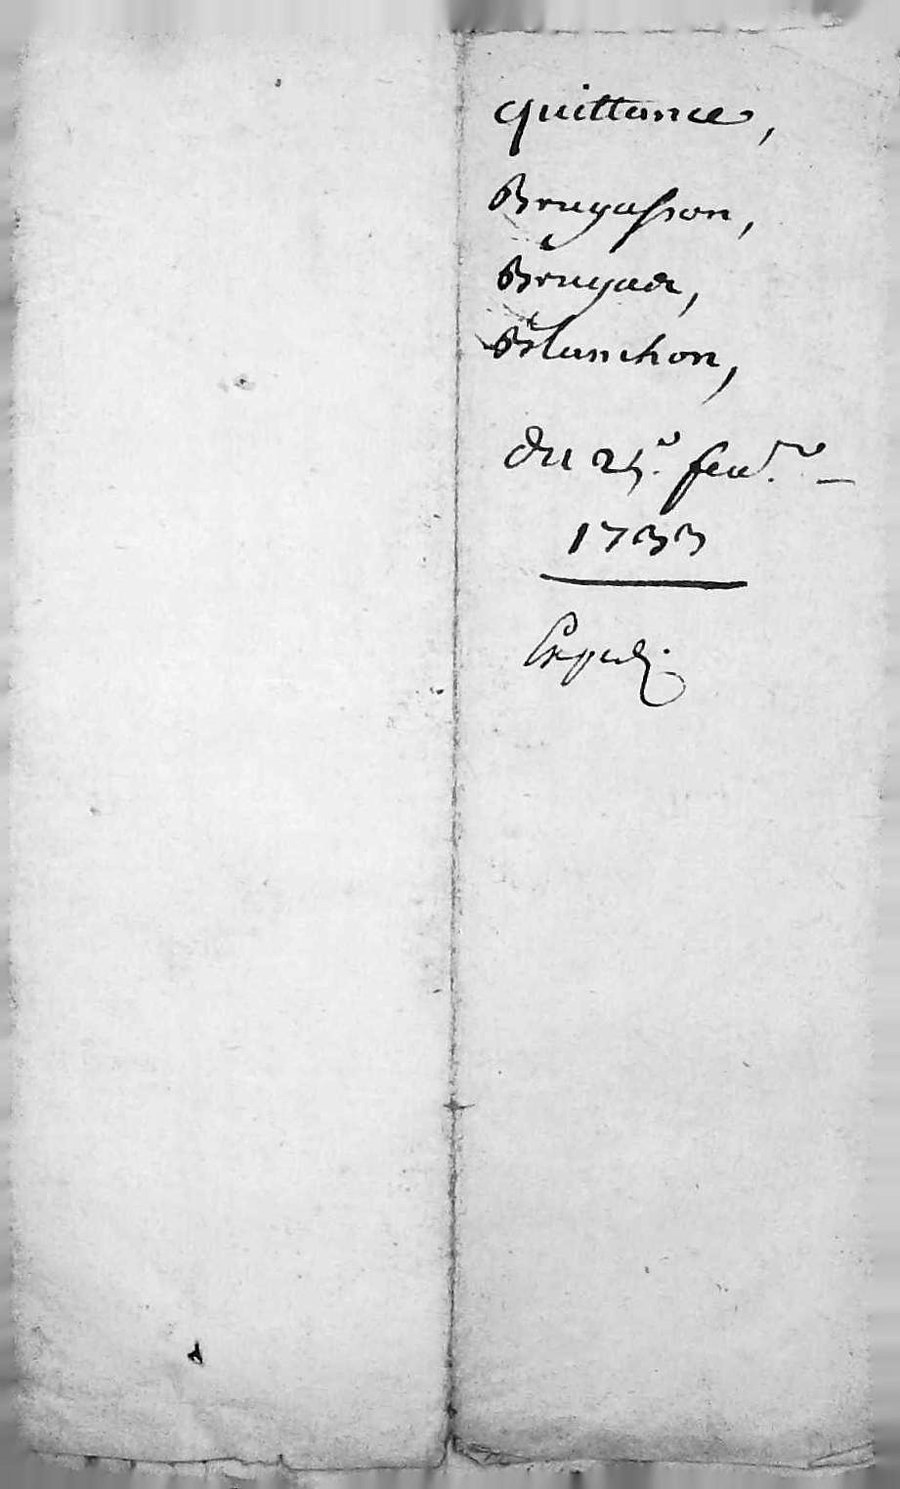 quittance,
Brugasson,
Brugade,
Blanchon,
du 25.e feu.r
1733
Exped.